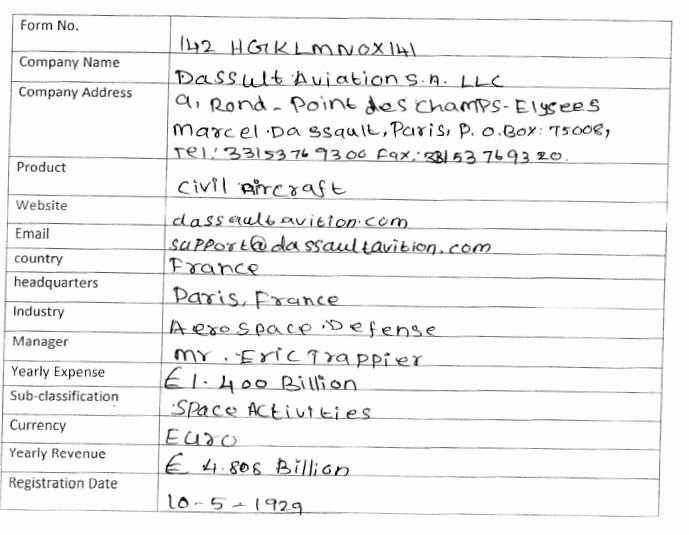 Form No.
142 HGIKLMNOX141
Company Name
Dassult Aviation S.A. LLC
Company Address
9, Rond - Point des Champs - Elysees
Marcel Dassault, Paris, P.O.Box: 75008,
Tel: 33153769300 Fax: 33153769320.
Product
Civil Aircraft
Website
dassaultavition.com
Email
support@dassaultavition.com
country
France
headquarters
Paris, France
Industry
Aerospace.Defense
Manager
Mr. Eric Trappier
Yearly Expense
€1.400 Billion
Sub-classification
Space Activities
Currency
Euro
Yearly Revenue
€ 4.808 Billion
Registration Date
10-5-1929